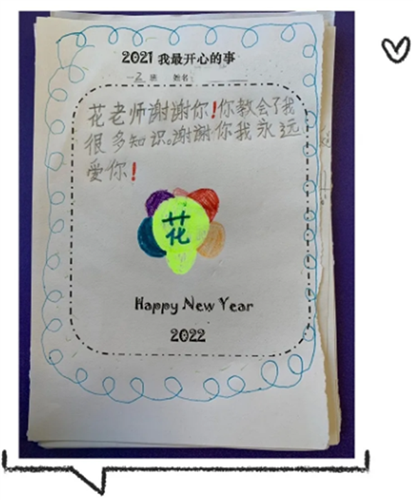 2021 我最开心的事
一2 班 姓名:
花老师谢谢你!你教会了我
很多知识。谢谢你我永远
爱你!
花
Happy New Year
2022